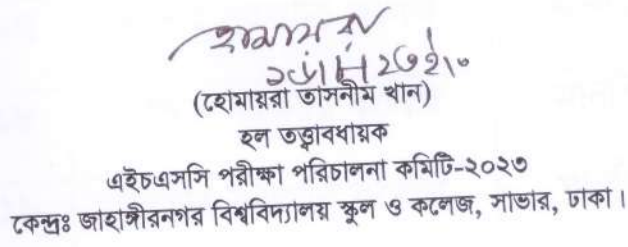 হোমায়রা
(হোমায়রা তাসনীম খান)
হল তত্ত্বাবধায়ক
এইচএসসি পরীক্ষা পরিচালনা কমিটি-২০২৩
কেন্দ্রঃ জাহাঙ্গীরনগর বিশ্ববিদ্যালয় স্কুল ও কলেজ, সাভার, ঢাকা।